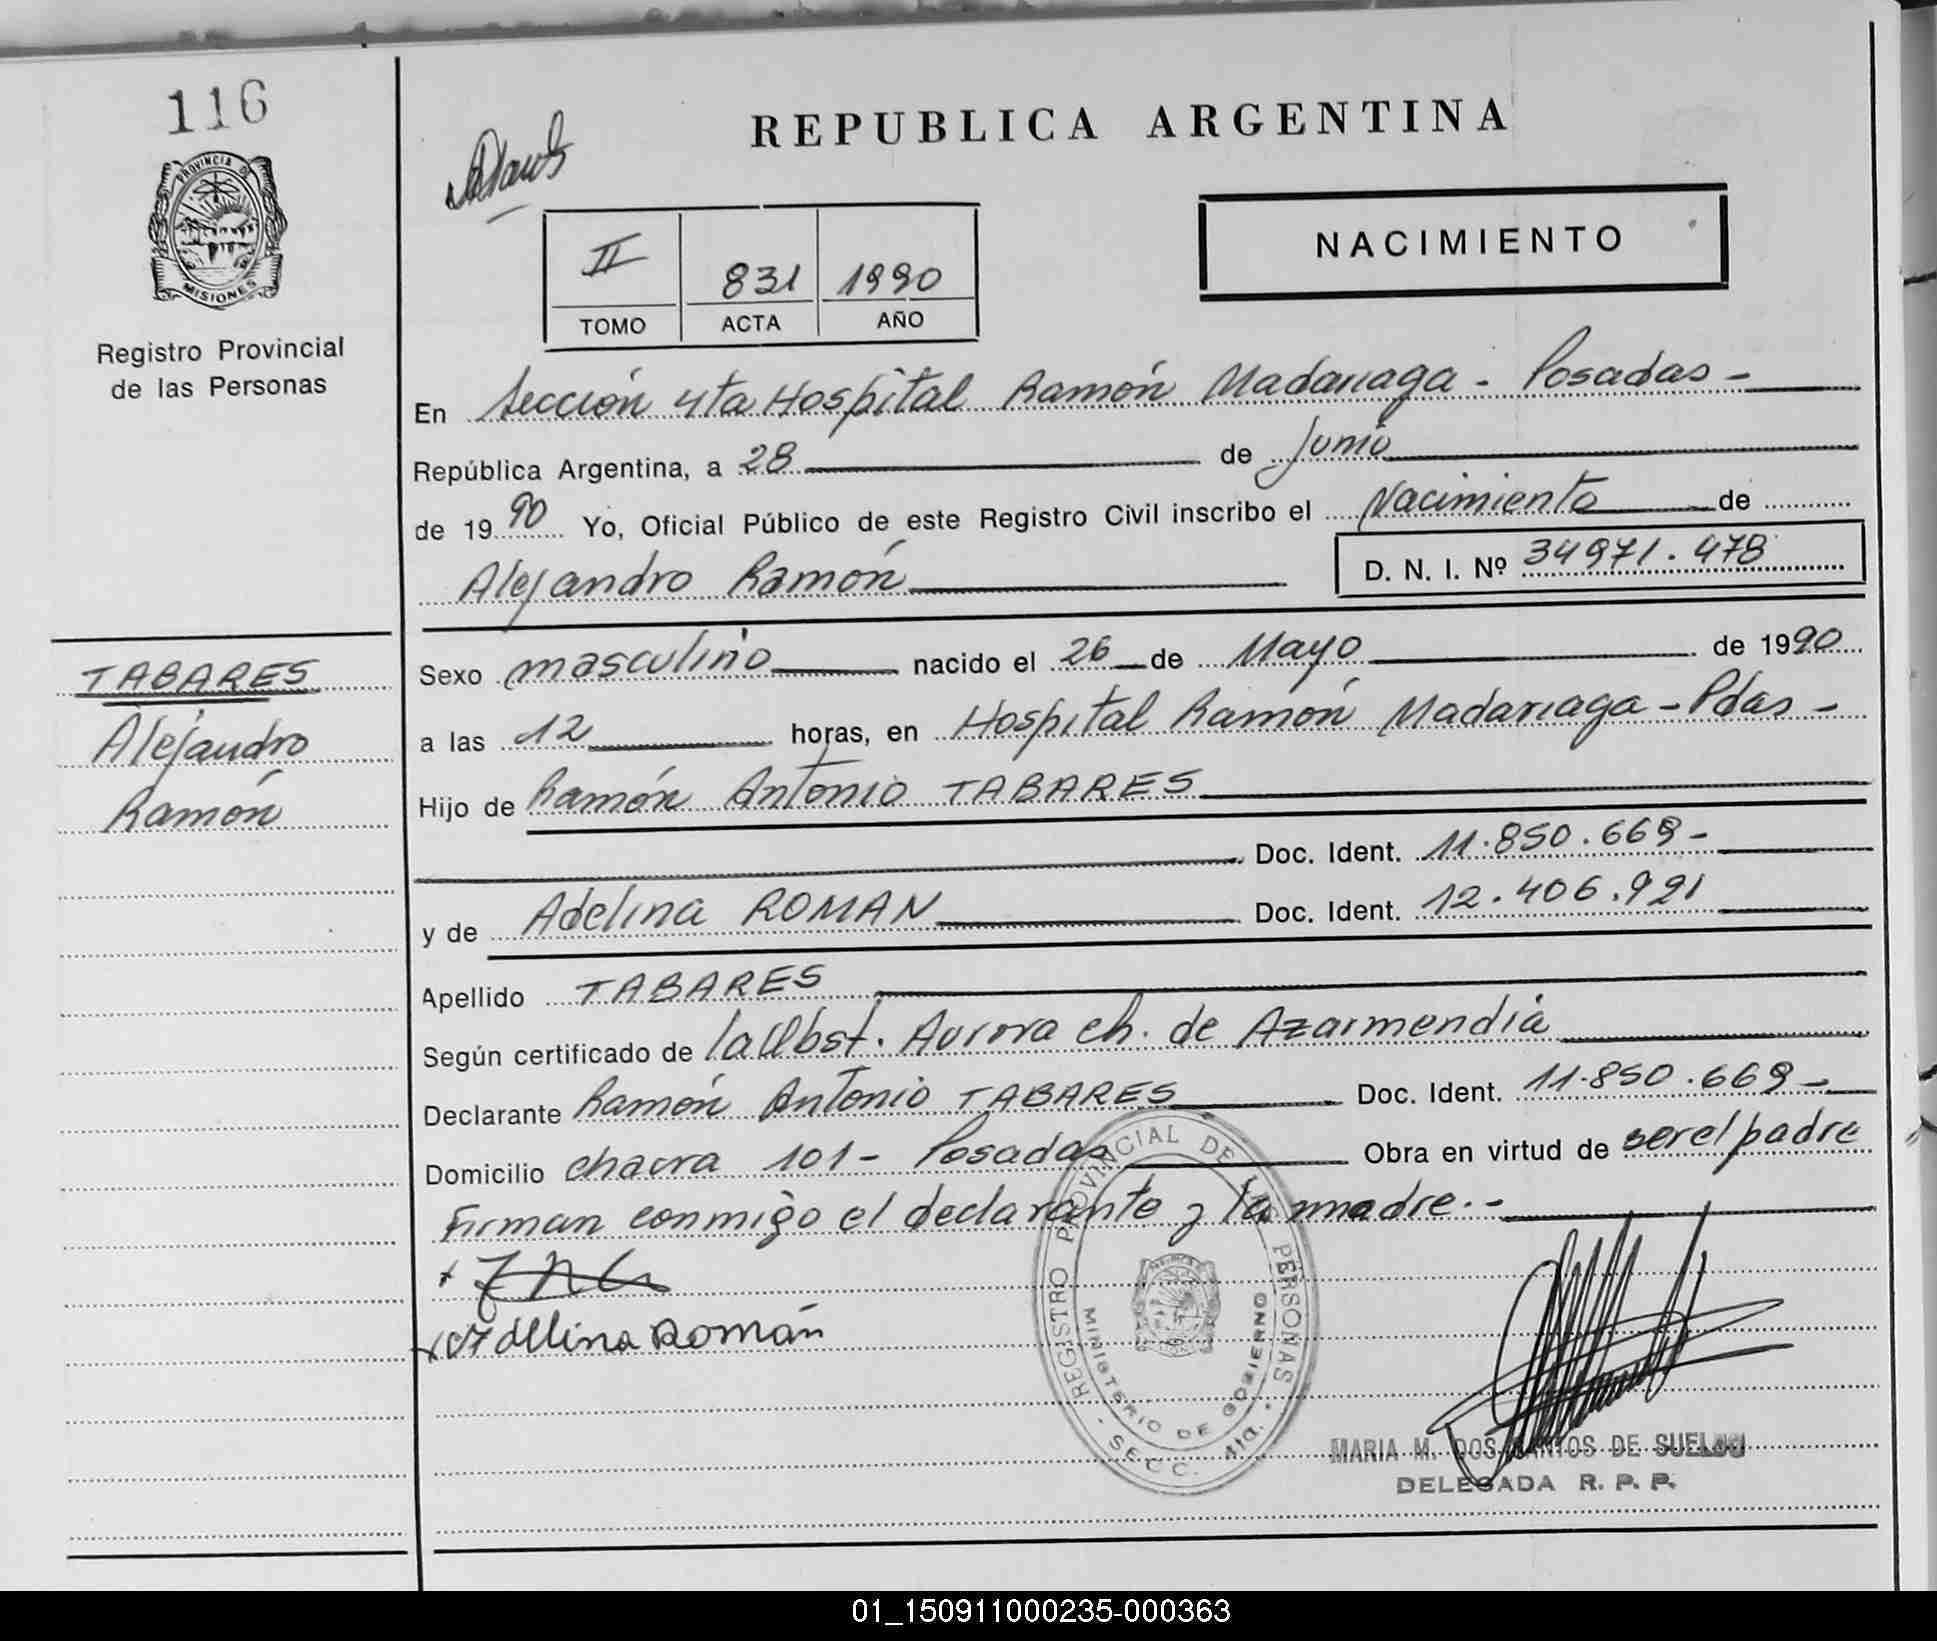 116
PROVINCIA DE
MISIONES
Registro Provincial
de las Personas
REPUBLICA ARGENTINA
NACIMIENTO
II 831 1990
TOMO ACTA AÑO
En Sección 4ta Hospital Ramón Madariaga - Posadas -
República Argentina, a 28 de Junio
de 1990 Yo, Oficial Público de este Registro Civil inscribo el Nacimiento de
Alejandro Ramón D. N. I. Nº 34971.478
TABARES
Alejandro
Ramón
Sexo masculino nacido el 26 de Mayo de 1990
a las 12 horas, en Hospital Ramón Madariaga - Pdas -
Hijo de Ramón Antonio TABARES
Doc. Ident. 11.850.669-
y de Adelina ROMAN Doc. Ident. 12.406.921
Apellido TABARES
Según certificado de la Obst. Aurora Ch. de Azarmendia
Declarante Ramón Antonio TABARES Doc. Ident. 11.850.669-
Domicilio chacra 101 - Posadas Obra en virtud de ser el padre
Firman conmigo el declarante y la madre.-
Adelina Román
REGISTRO PROVINCIAL DE LAS PERSONAS
MINISTERIO DE GOBIERNO
SECC. 4ta.
MARIA M. DOS SANTOS DE SUELDO
DELEGADA R. P. P.
01_150911000235-000363